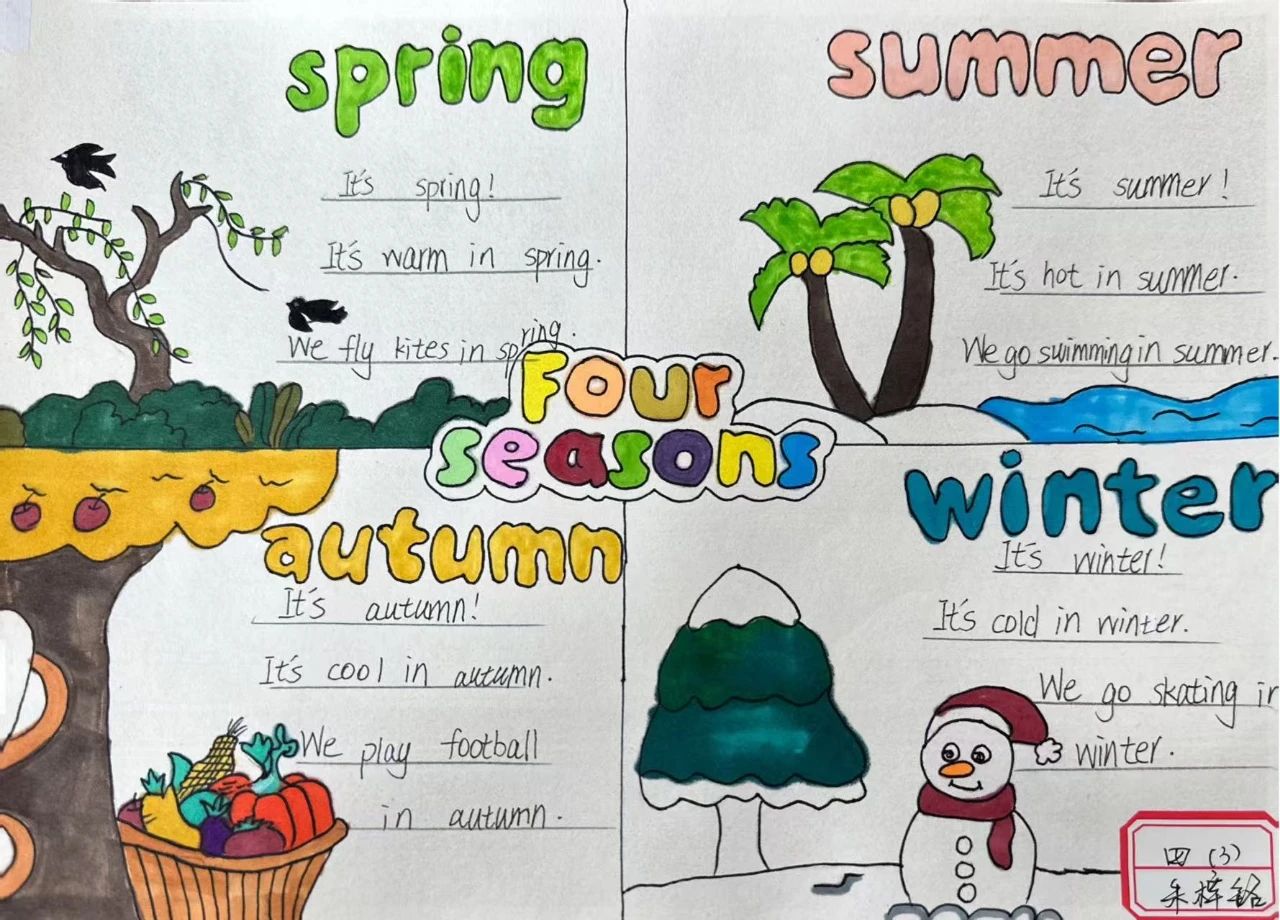 spring
It's spring!
It's warm in spring.
We fly kites in spring.
summer
It's summer!
It's hot in summer.
We go swimming in summer.
Four
seasons
autumn
It's autumn!
It's cool in autumn.
We play football
in autumn.
winter
It's winter!
It's cold in winter.
We go skating in
winter.
四（3）
朱梓铭